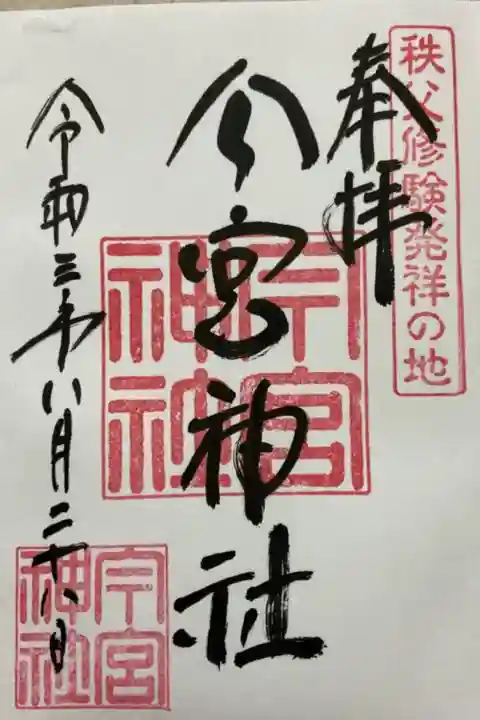 秩父修験発祥の地
奉拝
今宮神社
今宮神社
令和三年八月二十八日
今宮神社